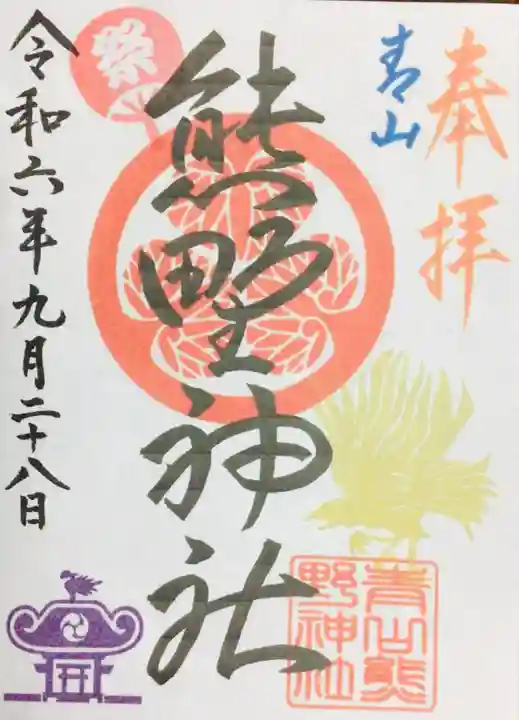 奉拝
青山
熊野神社
祭
令和六年九月二十八日
青山熊
野神社